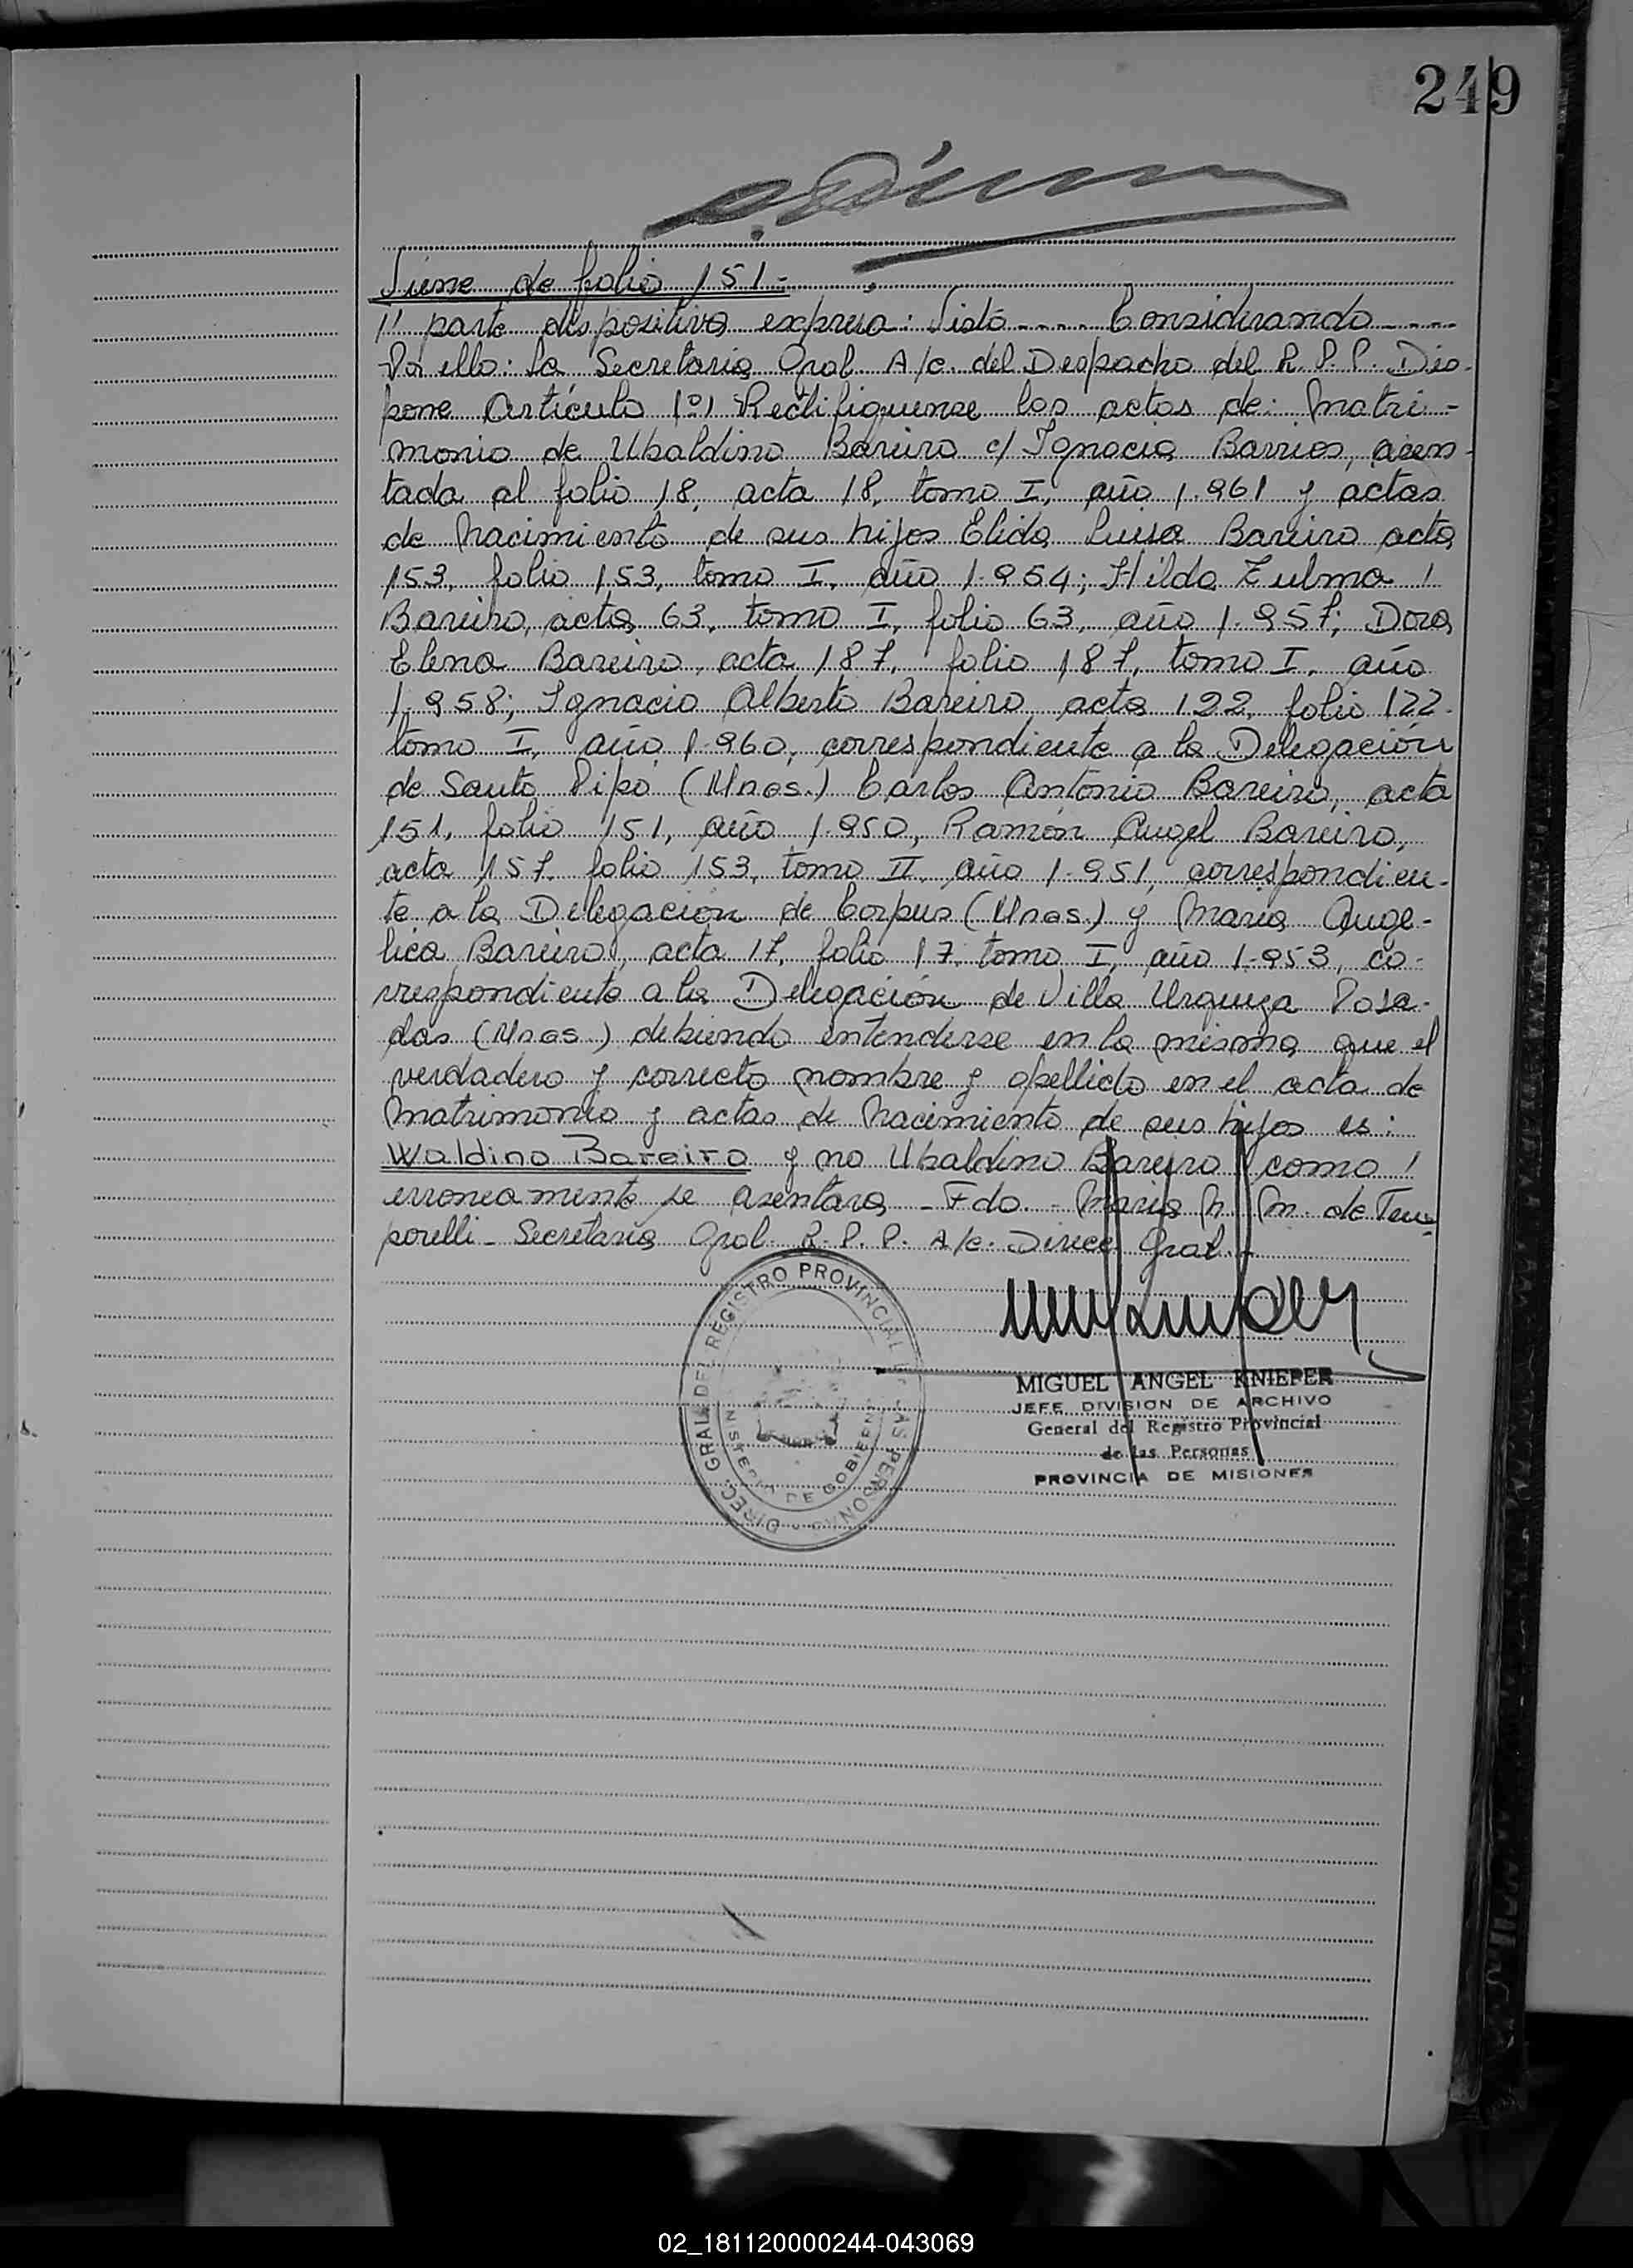 249
Viene de folio 151.-
1" parte dispositiva expresa: Visto ---- Considerando ----
Por ello: La Secretaria Gral. A/c. del Despacho del R. P. P. Dis-
pone Artículo 1º) Rectifiquense las actas de: Matri-
monio de Ubaldino Bareiro c/ Ignacia Barrios, asen-
tada al folio 18, acta 18, tomo I, año 1.961 y actas
de Nacimiento de sus hijos Elida Luisa Bareiro acta
153, folio 153, tomo I, año 1.954; Hilda Zulma
Bareiro, acta 63, tomo I, folio 63, año 1.957; Dora
Elena Bareiro, acta 187, folio 187, tomo I, año
1.958; Ignacio Alberto Bareiro, acta 122, folio 122.
tomo I, año 1.960, correspondiente a la Delegación
de Santo Pipó (Mnes.) Carlos Antonio Bareiro, acta
151, folio 151, año 1.950, Ramón Angel Bareiro,
acta 157, folio 153, tomo II, año 1.951, correspondien-
te a la Delegación de Corpus (Mnes.) y Maria Ange-
lica Bareiro, acta 17, folio 17, tomo I, año 1.953, co-
rrespondiente a la Delegación de Villa Urquiza Posa-
das (Mnes.) debiendo entenderse en la misma que el
verdadero y correcto nombre y apellido en el acta de
Matrimonio y actas de Nacimiento de sus hijos es:
Waldino Bareiro y no Ubaldino Bareiro como
erroneamente se asentara - Fdo. - Maria M. M. de Tem
porelli - Secretaria Gral. R. P. P. A/c. Direcc. Gral.-
DIREC. GRAL. DEL REGISTRO PROVINCIAL DE LAS PERSONAS
MINISTERIO DE GOBIERNO
MIGUEL ANGEL KNIEPER
JEFE DIVISION DE ARCHIVO
General del Registro Provincial
de las Personas
PROVINCIA DE MISIONES
02_181120000244-043069